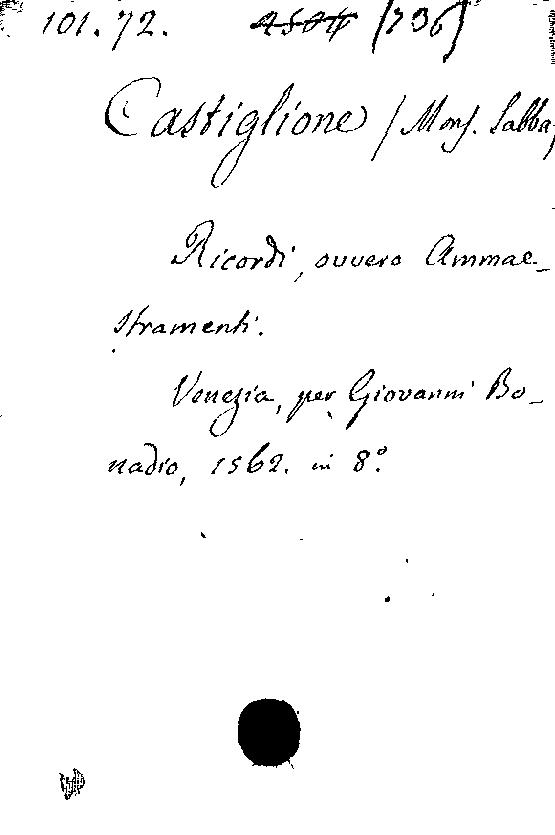 101.72. (736)
Castiglione / Mons. Sabba,
Ricordi, ovvero Ammae-
stramenti.
Venezia, per Giovanni Bo-
nadio, 1562. in 8.°